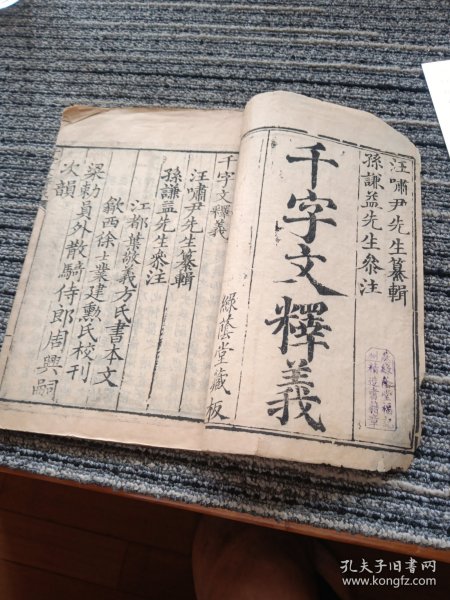 汪嘯尹先生纂輯
孫謙益先生參注
千字文釋義
綠蔭堂藏板
千字文釋義
汪嘯尹先生纂輯
孫謙益先生參注
江都葉敬義方氏書本文
歙西徐士業建勳氏校刊
梁勅員外散騎侍郎周興嗣
次韻
孔夫子旧书网
www.kongfz.com